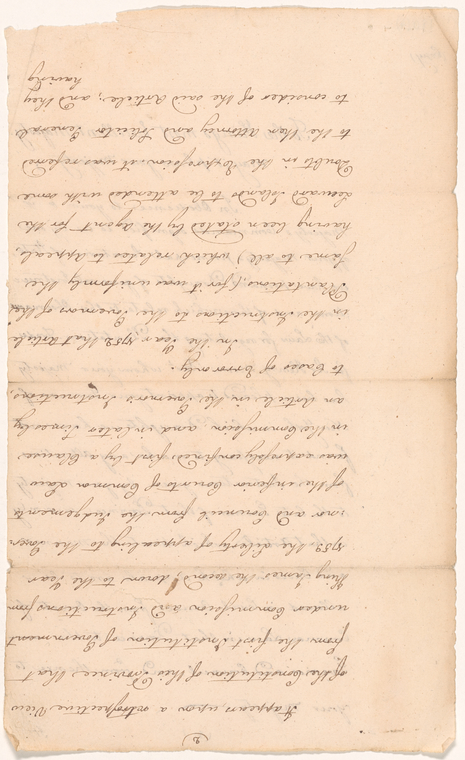 (2)
It appears, upon a retrospective View
of the Constitution of this Province, that
from the first Institution of Government
under Commission and Instructions from
King James the Second, down to the Year
1753. the Liberty of appealing to the Gover
=nor and Council from the Judgements
of the inferior Courts of Common Law
was expressly confined, first by a Clause
in the Commission and in later Times by
an Article in the Governor's Instructions,
to Cases of Error only.
In the Year 1753 that Article
in the Instructions to the Governors of the
Plantations, (for it was uniformly the
same to all) which relates to Appeals,
having been stated by the Agent for the
Leeward Islands to be attended with some
Doubt in the Expression it was referred
to the then Attorney and Solicitor General
to consider of the said Article; and they
having